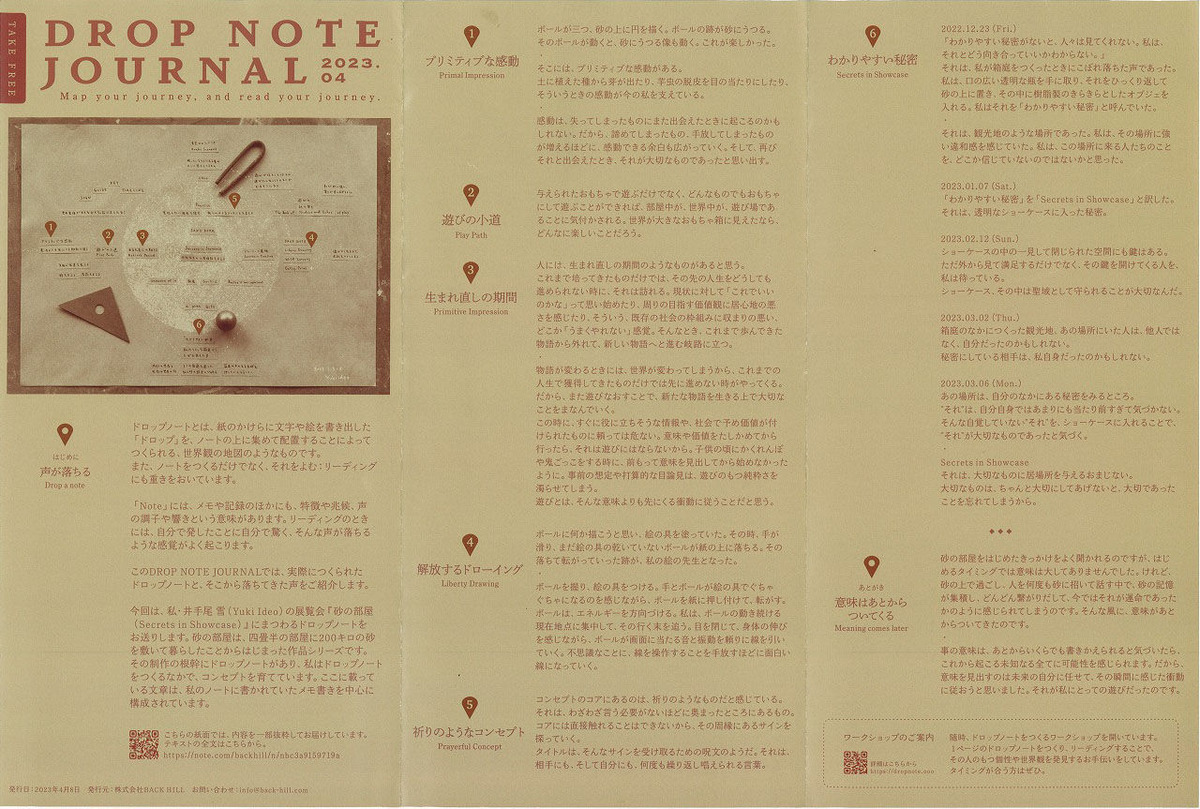 TAKE FREE
DROP NOTE
JOURNAL 2023.
04
Map your journey, and read your journey.
1
2
3
4
5
6
はじめに
声が落ちる
Drop a note
ドロップノートとは、紙のかけらに文字や絵を書き出した
「ドロップ」を、ノートの上に集めて配置することによって
つくられる、世界観の地図のようなものです。
また、ノートをつくるだけでなく、それをよむ:リーディング
にも重きをおいています。
「Note」には、メモや記録のほかにも、特徴や兆候、声
の調子や響きという意味があります。リーディングのとき
には、自分で発したことに自分で驚く、そんな声が落ちる
ような感覚がよく起こります。
このDROP NOTE JOURNALでは、実際につくられた
ドロップノートと、そこから落ちてきた声をご紹介します。
今回は、私・井手尾 雪(Yuki Ideo)の展覧会『砂の部屋
(Secrets in Showcase)』にまつわるドロップノートを
お送りします。砂の部屋は、四畳半の部屋に200キロの砂
を敷いて暮らしたことからはじまった作品シリーズです。
その制作の根幹にドロップノートがあり、私はドロップノート
をつくるなかで、コンセプトを育てています。ここに載って
いる文章は、私のノートに書かれていたメモ書きを中心に
構成されています。
こちらの紙面では、内容を一部抜粋してお届けしています。
テキストの全文はこちらから。
https://note.com/backhill/n/nbc3a9159719a
発行日:2023年4月8日 発行元:株式会社BACK HILL お問い合わせ:info@back-hill.com
1
プリミティブな感動
Primal Impression
ボールが三つ、砂の上に円を描く。ボールの跡が砂にうつる。
そのボールが動くと、砂にうつる像も動く。これが楽しかった。
そこには、プリミティブな感動がある。
土に植えた種から芽が出たり、芋虫の脱皮を目の当たりにしたり、
そういうときの感動が今の私を支えている。
感動は、失ってしまったものにまた出会えたときに起こるのかも
しれない。だから、諦めてしまったもの、手放してしまったもの
が増えるほどに、感動できる余白も広がっていく。そして、再び
それと出会えたとき、それが大切なものであったと思い出す。
2
遊びの小道
Play Path
与えられたおもちゃで遊ぶだけでなく、どんなものでもおもちゃ
にして遊ぶことができれば、部屋中が、世界中が、遊び場であ
ることに気付かされる。世界が大きなおもちゃ箱に見えたなら、
どんなに楽しいことだろう。
3
生まれ直しの期間
Primitive Impression
人には、生まれ直しの期間のようなものがあると思う。
これまで培ってきたものだけでは、その先の人生をどうしても
進められない時に、それは訪れる。現状に対して「これでいい
のかな」って思い始めたり、周りの目指す価値観に居心地の悪
さを感じたり、そういう、既存の社会の枠組みに収まりの悪い、
どこか「うまくやれない」感覚。そんなとき、これまで歩んできた
物語から外れて、新しい物語へと進む岐路に立つ。
物語が変わるときには、世界が変わってしまうから、これまでの
人生で獲得してきたものだけでは先に進めない時がやってくる。
だから、また遊びなおすことで、新たな物語を生きる上で大切な
ことをまなんでいく。
この時に、すぐに役に立ちそうな情報や、社会で予め価値が付
けられたものに頼っては危ない。意味や価値をたしかめてから
行ったら、それは遊びにはならないから。子供の頃にかくれんぼ
や鬼ごっこをする時に、前もって意味を見出してから始めなかった
ように。事前の想定や打算的な目論見は、遊びのもつ純粋さを
濁らせてしまう。
遊びとは、そんな意味よりも先にくる衝動に従うことだと思う。
4
解放するドローイング
Liberty Drawing
ボールに何か描こうと思い、絵の具を塗っていた。その時、手が
滑り、まだ絵の具の乾いていないボールが紙の上に落ちる。その
落ちて転がっていった跡が、私の絵の先生となった。
ボールを握り、絵の具をつける。手とボールが絵の具でぐちゃ
ぐちゃになるのを感じながら、ボールを紙に押し付けて、転がす。
ボールは、エネルギーを方向づける。私は、ボールの動き続ける
現在地点に集中して、その行く末を追う。目を閉じて、身体の伸び
を感じながら、ボールが画面に当たる音と振動を頼りに線を引い
ていく。不思議なことに、線を操作することを手放すほどに面白い
線になっていく。
5
祈りのようなコンセプト
Prayerful Concept
コンセプトのコアにあるのは、祈りのようなものだと感じている。
それは、わざわざ言う必要がないほどに奥まったところにあるもの。
コアには直接触れることはできないから、その周縁にあるサインを
探っていく。
タイトルは、そんなサインを受け取るための呪文のようだ。それは、
相手にも、そして自分にも、何度も繰り返し唱えられる言葉。
6
わかりやすい秘密
Secrets in Showcase
2022.12.23 (Fri.)
「わかりやすい秘密がないと、人々は見てくれない。私は、
それとどう向き合っていいかわからない。」
それは、私が箱庭をつくったときにこぼれ落ちた声であった。
私は、口の広い透明な瓶を手に取り、それをひっくり返して
砂の上に置き、その中に樹脂製のきらきらとしたオブジェを
入れる。私はそれを「わかりやすい秘密」と呼んでいた。
それは、観光地のような場所であった。私は、その場所に強
い違和感を感じていた。私は、この場所に来る人たちのこと
を、どこか信じていないのではないかと思った。
2023.01.07 (Sat.)
「わかりやすい秘密」を「Secrets in Showcase」と訳した。
それは、透明なショーケースに入った秘密。
2023.02.12 (Sun.)
ショーケースの中の一見して閉じられた空間にも鍵はある。
ただ外から見て満足するだけでなく、その鍵を開けてくる人を、
私は待っている。
ショーケース、その中は聖域として守られることが大切なんだ。
2023.03.02 (Thu.)
箱庭のなかにつくった観光地、あの場所にいた人は、他人では
なく、自分だったのかもしれない。
秘密にしている相手は、私自身だったのかもしれない。
2023.03.06 (Mon.)
あの場所は、自分のなかにある秘密をみるところ。
“それ”は、自分自身ではあまりにも当たり前すぎて気づかない。
そんな自覚していない“それ”を、ショーケースに入れることで、
“それ”が大切なものであったと気づく。
Secrets in Showcase
それは、大切なものに居場所を与えるおまじない。
大切なものは、ちゃんと大切にしてあげないと、大切であった
ことを忘れてしまうから。
あとがき
意味はあとから
ついてくる
Meaning comes later
砂の部屋をはじめたきっかけをよく聞かれるのですが、はじ
めるタイミングでは意味は大してありませんでした。けれど、
砂の上で過ごし、人を何度も砂に招いて話す中で、砂の記憶
が集積し、どんどん繋がりだして、今ではそれが運命であった
かのように感じられてしまうのです。そんな風に、意味があと
からついてきたのです。
事の意味は、あとからいくらでも書きかえられると気づいたら、
これから起こる未知なる全てに可能性を感じられます。だから、
意味を見出すのは未来の自分に任せて、その瞬間に感じた衝動
に従おうと思いました。それが私にとっての遊びだったのです。
ワークショップのご案内
詳細はこちらから
https://dropnote.ooo
随時、ドロップノートをつくるワークショップを開いています。
1ページのドロップノートをつくり、リーディングすることで、
その人のもつ個性や世界観を発見するお手伝いをしています。
タイミングが合う方はぜひ。